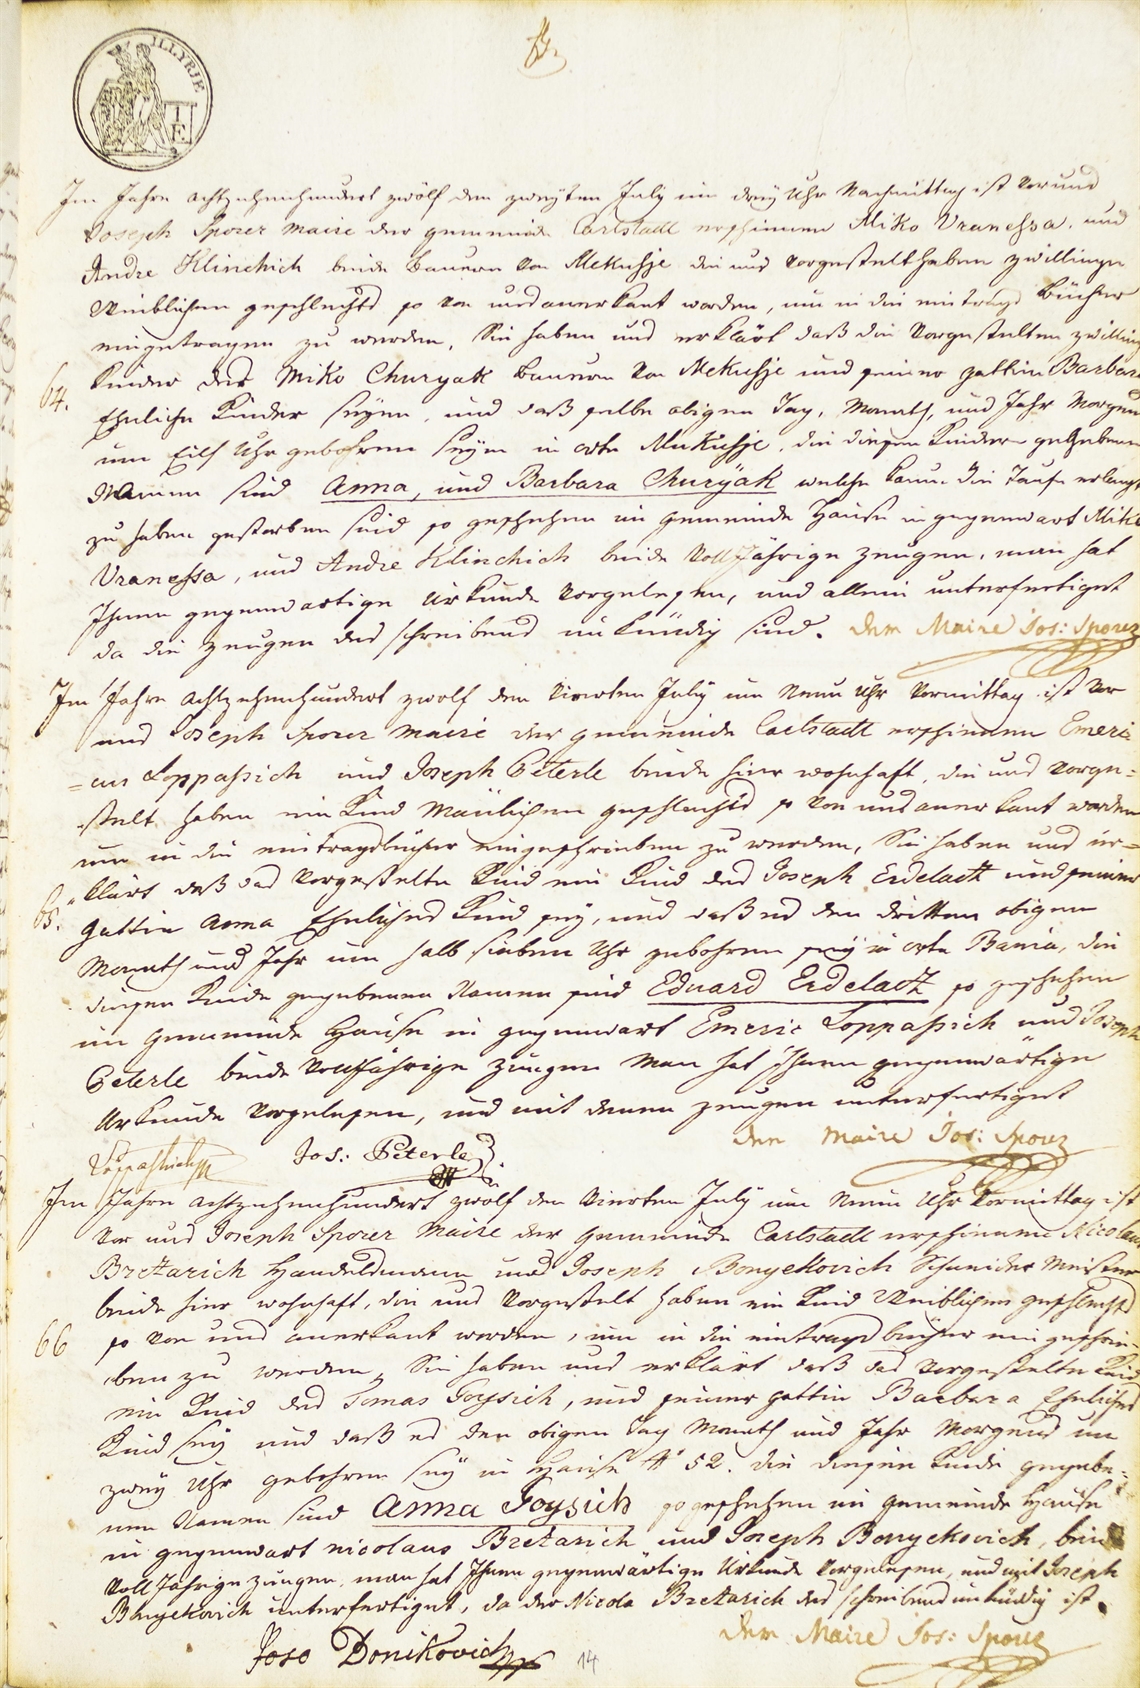 ILLYRIE
Im Jahre achtzehenhundert zwölf den zweyten July um drey Uhr Nachmittag ist vor uns
Joseph Sporer Maire der gemeinde Carlstadt erschienen Miko Vranessa, und
Andre Klinchich beide Bauern von Mekushje die uns vorgestelt haben zwillinge
Weiblichen geschlechts so von uns anerkant worden, um in die eintrags bücher
eingetragen zu werden, Sie haben uns erklärt daß die vorgestelten zwilling
64. Kinder des Miko Churyak bauern von Mekushje und seiner gattin Barbara
Ehelihe Kinder seyen, und daß selbe obigen Tag, Monath, und Jahr Morgens
um Eilf Uhr gebohren seyen in orte Mukushje, die diesen Kindern gegebenen
Namen sind Anna, und Barbara Churÿak welche kaum die Taufe erlangt
zu haben gestorben sind so geschehen im gemeinde Hause in gegenwart Miko
Vranessa, und Andre Klinchich beide Volljährige zeugen, man hat
Ihnen gegenwartige Urkunde vorgelesen, und allein unterfertiget
da die zeugen des schreibens unkündig sind. der Maire Jos: Sporer
Im Jahre achtzehenhundert zwolf den Vierten July um Neun Uhr Vormittag ist vor
uns Joseph Sporer Maire der gemeinde Carlstadt erschienen Emeri
=cus Loppassich und Joseph Peterle beide hier wohnhaft, die uns vorge=
stelt haben ein Kind Mänlichen geschlechts so von uns anerkant worden
um in die eintragsbücher eingeschrieben zu werden, Sie haben uns er=
klärt daß das vorgestelte Kind ein Kind des Joseph Erdelatz und seiner
65. gattin Anna Eheliches Kind sey, und daß es den dritten obigen
Monath und Jahr um halb sieben Uhr gebohren sey in orte Bania, die
diesen Kinde gegebenen Namen sind Eduard Erdelatz so geschehen
im gemeinde Hause in gegenwart Emeric Loppassich und Joseph
Peterle beide Volljährige zeugen man hat ihnen gegenwärtige
Urkunde vorgelesen, und mit denen zeugen unterfertiget
der Maire Jos: Sporer
Loppashich Jos: Peterle
Im Jahre achtzehenhundert zwölf den Vierten July um Neun Uhr Vormittag ist
vor uns Joseph Sporer Maire der gemeinde Carlstadt erschienen Nicolaus
Bretarich Handelsmann und Joseph Bonyekovich Schneider Meister
beide hier wohnhaft, die uns vorgestelt haben ein Kind Weiblichen geschlechts
66 so von uns anerkant worden, um in die eintrags bücher eingeschrie-
ben zu werden, Sie haben uns erklärt daß das vorgestelte Kind
ein Kind des Tomas Goysich, und seiner gattin Barbara Eheliches
Kind sey und daß es den obigen Tag Monath und Jahr Morgens um
zwey Uhr gebohren sey in Hause # 52. die diesen Kinde gegebe=
nen Namen sind Anna Goysich so geschehen im gemeinde Hause
in gegenwart nicolaus Bretarich und Joseph Bonyekovich, beide
Voll Jährige zeugen, man hat Ihnen gegenwärtige Urkunde vorgelesen, und mit Joseph
Bonyekovich unterfertiget, da der Nicola Bretarich des schreibens unkündig ist.
der Maire Jos: Sporer
Joso Donikovich 14